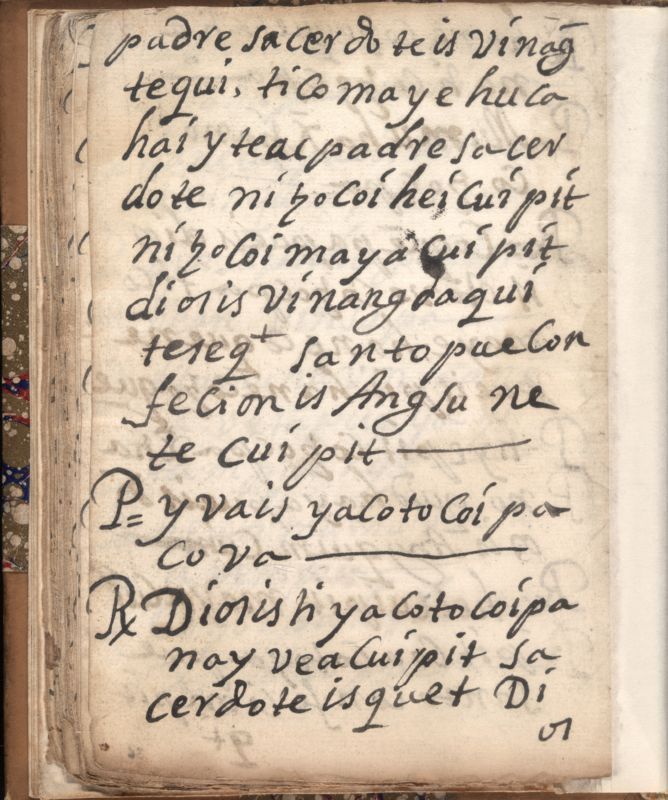 padre sacerdote is vinag̃
tequi. tico maye huca
hai y teac padre sacer
dote ni ꜩocoi hei cui pit
ni ꜩocoi maya cui pit
diosis vinangda qui
teseq+ santo pue con
fecion is Angsu ne
te cui pit
P= y vais yacotocoi pa
cova
R Diosis ti yacotocoi pa
nay vea cuipit sa
cerdote is quet Di
os